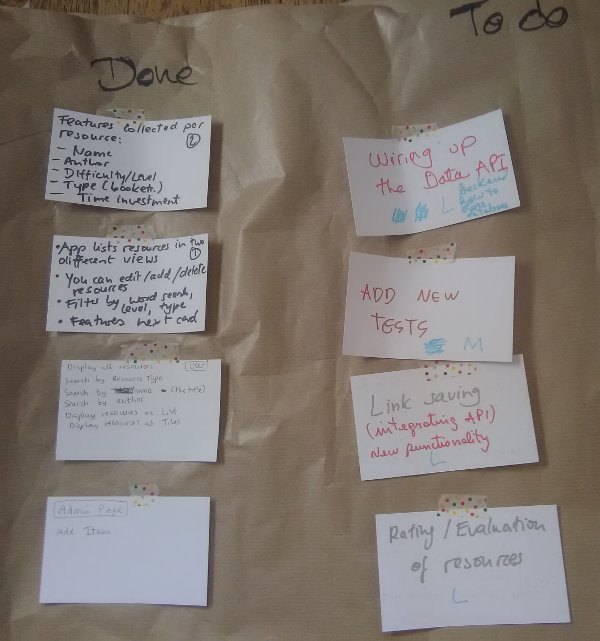 Done
Features collected per
resource: ②
- Name
- Author
- Difficulty/Level
- Type (book etc.)
- Time investment
• App lists resources in two
different views ①
• You can edit/add/delete
resources
• Filter by word search,
level, type
• Features next card
Display all resources User
Search by Resource Type
Search by name (the title)
Search by author
Display resources as List
Display resources as Tiles
Admin Page
Add Item
To do
Wiring up
the Data API
L backend
how to
database
ADD NEW
TESTS
M
Link saving
(integrating API)
New functionality
L
Rating/Evaluation
of resources
L